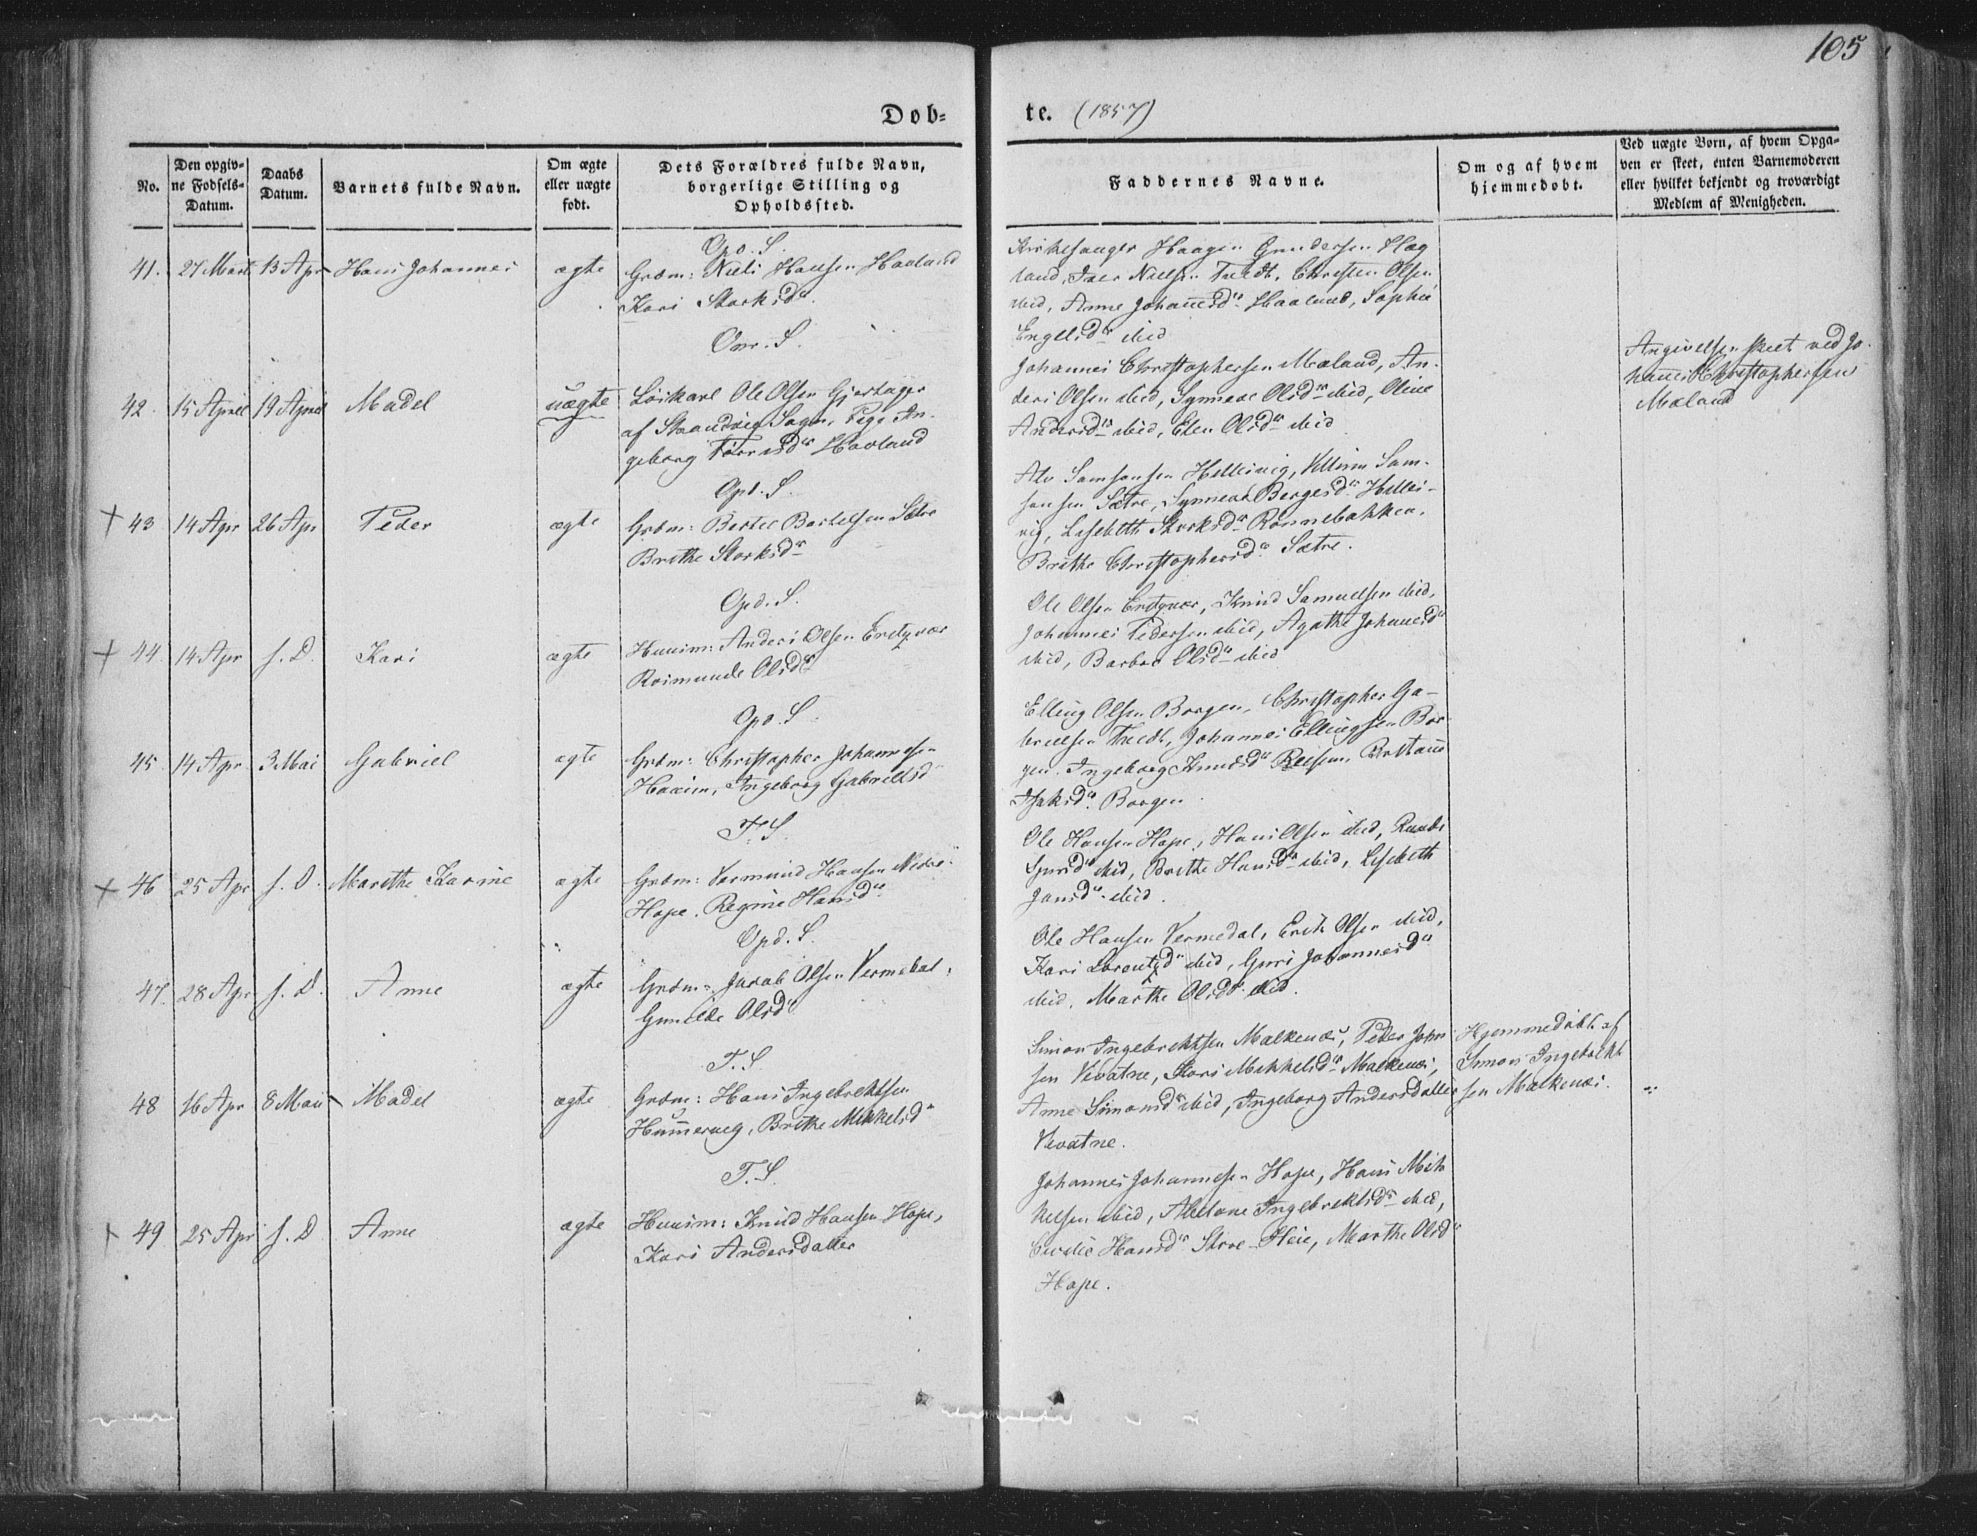 105
Dob- te. (1857)
No.
Den opgiv-
ne Fødsels-
Datum.
Daabs
Datum.
Barnets fulde Navn.
Om ægte
eller uægte
født.
Dets Forældres fulde Navn,
borgerlige Stilling og
Opholdssted.
Faddernes Navne.
Om og af hvem
hjemmedøbt.
Ved uægte Børn, af hvem Opga-
ven er skeet, enten Barnemoderen
eller hvilket bekjendt og troværdigt
Medlem af Menigheden.
Opd. S.
41. 27 Mart 13 Apr Hans Johannes ægte Grdm: Niels Hansen Haaland
Kari Storksdr.
Kirkesanger Haagen Gundersen Hæg
land, Iver Nielsen Tvedt, Christen Olsen
ibid, Anne Johannesdr Haaland, Sophie
Engelsdr ibid
42. 15 April 19 April Madel uægte Løskarl Ole Olsen Gjertager
af Strandvig Sogn, Pige In-
geborg Torrisdr Havland
Johannes Christophersen Mæland, An-
ders Olsen ibid, Synneve Olsdr ibid, Oline
Andersdr ibid, Elen Olsdr ibid
Angivelsen skeet ved Jo-
hannes Christophersen
Mæland
Opd. S.
+ 43 14 Apr 26 Apr Peder ægte Grdm: Bertel Bertelsen Sætre
Brithe Storksdr
Alv Samsonsen Hellevig, Villum Sam-
sonsen Sætre, Synneve Børgesdr Helle-
vig, Lisebeth Storksdr Rønnebakken,
Brithe Christophersdr Sætre.
Opd. S.
+ 44 14 Apr s. D. Kari ægte Huusm: Anders Olsen Eretzvær
Roimunde Olsdr
Ole Olsen Eretzvær, Knud Samuelsen ibid,
Johannes Pedersen ibid, Agathe Johannesdr
ibid, Barbro Olsdr ibid
Opd. S.
45 14 Apr 3 Mai Gabriel ægte Grdm: Christopher Johannesen
Haaim, Ingeborg Gabrielsdr
Elling Olsen Borgen, Christopher Ga-
brielsen Tvedt, Johannes Ellingsen Bor-
gen, Ingeborg Knudsdr
Isaksdr Borgen.
T. S.
+ 46 25 Apr s. D. Marithe Karine ægte Grdm: Vermund Hansen Nedre
Hope, Regine Hansdr
Ole Hansen Hope, Hans Olsen ibid,
ibid, Brithe Hansdr ibid, Lisebeth
Jansdr ibid.
Opd. S.
47. 28 Apr s. D. Anne ægte Grdm: Jacob Olsen Vermedal,
Gunilde Olsdr
Ole Hansen Vermedal, Erik Olsen ibid,
Kari Lorentzdr ibid, Guri Johannesdr
ibid, Marthe Olsdr ibid.
T. S.
48 16 Apr 8 Mai Madel ægte Grdm: Hans Ingebrektsen
Hummervig, Brithe Mikkelsdr
Simon Ingebrektsen Malkenæs, Peder John
sen Vevatne, Kari Mikkelsdr Malkenæs,
Anne Simonsdr ibid, Ingeborg Andersdatter
Vevatne.
Hjemmedøbt af
Simon Ingebrekt
sen Malkenæs.
T. S.
49 25 Apr s. D Anne ægte Huusm: Knud Hansen Hope,
Kari Andersdatter
Johannes Johannesen Hope, Hans Mik
kelsen ibid, Abelone Ingebrektsdr ibid,
Hansdr Store-Heie, Marthe Olsdr
Hope.